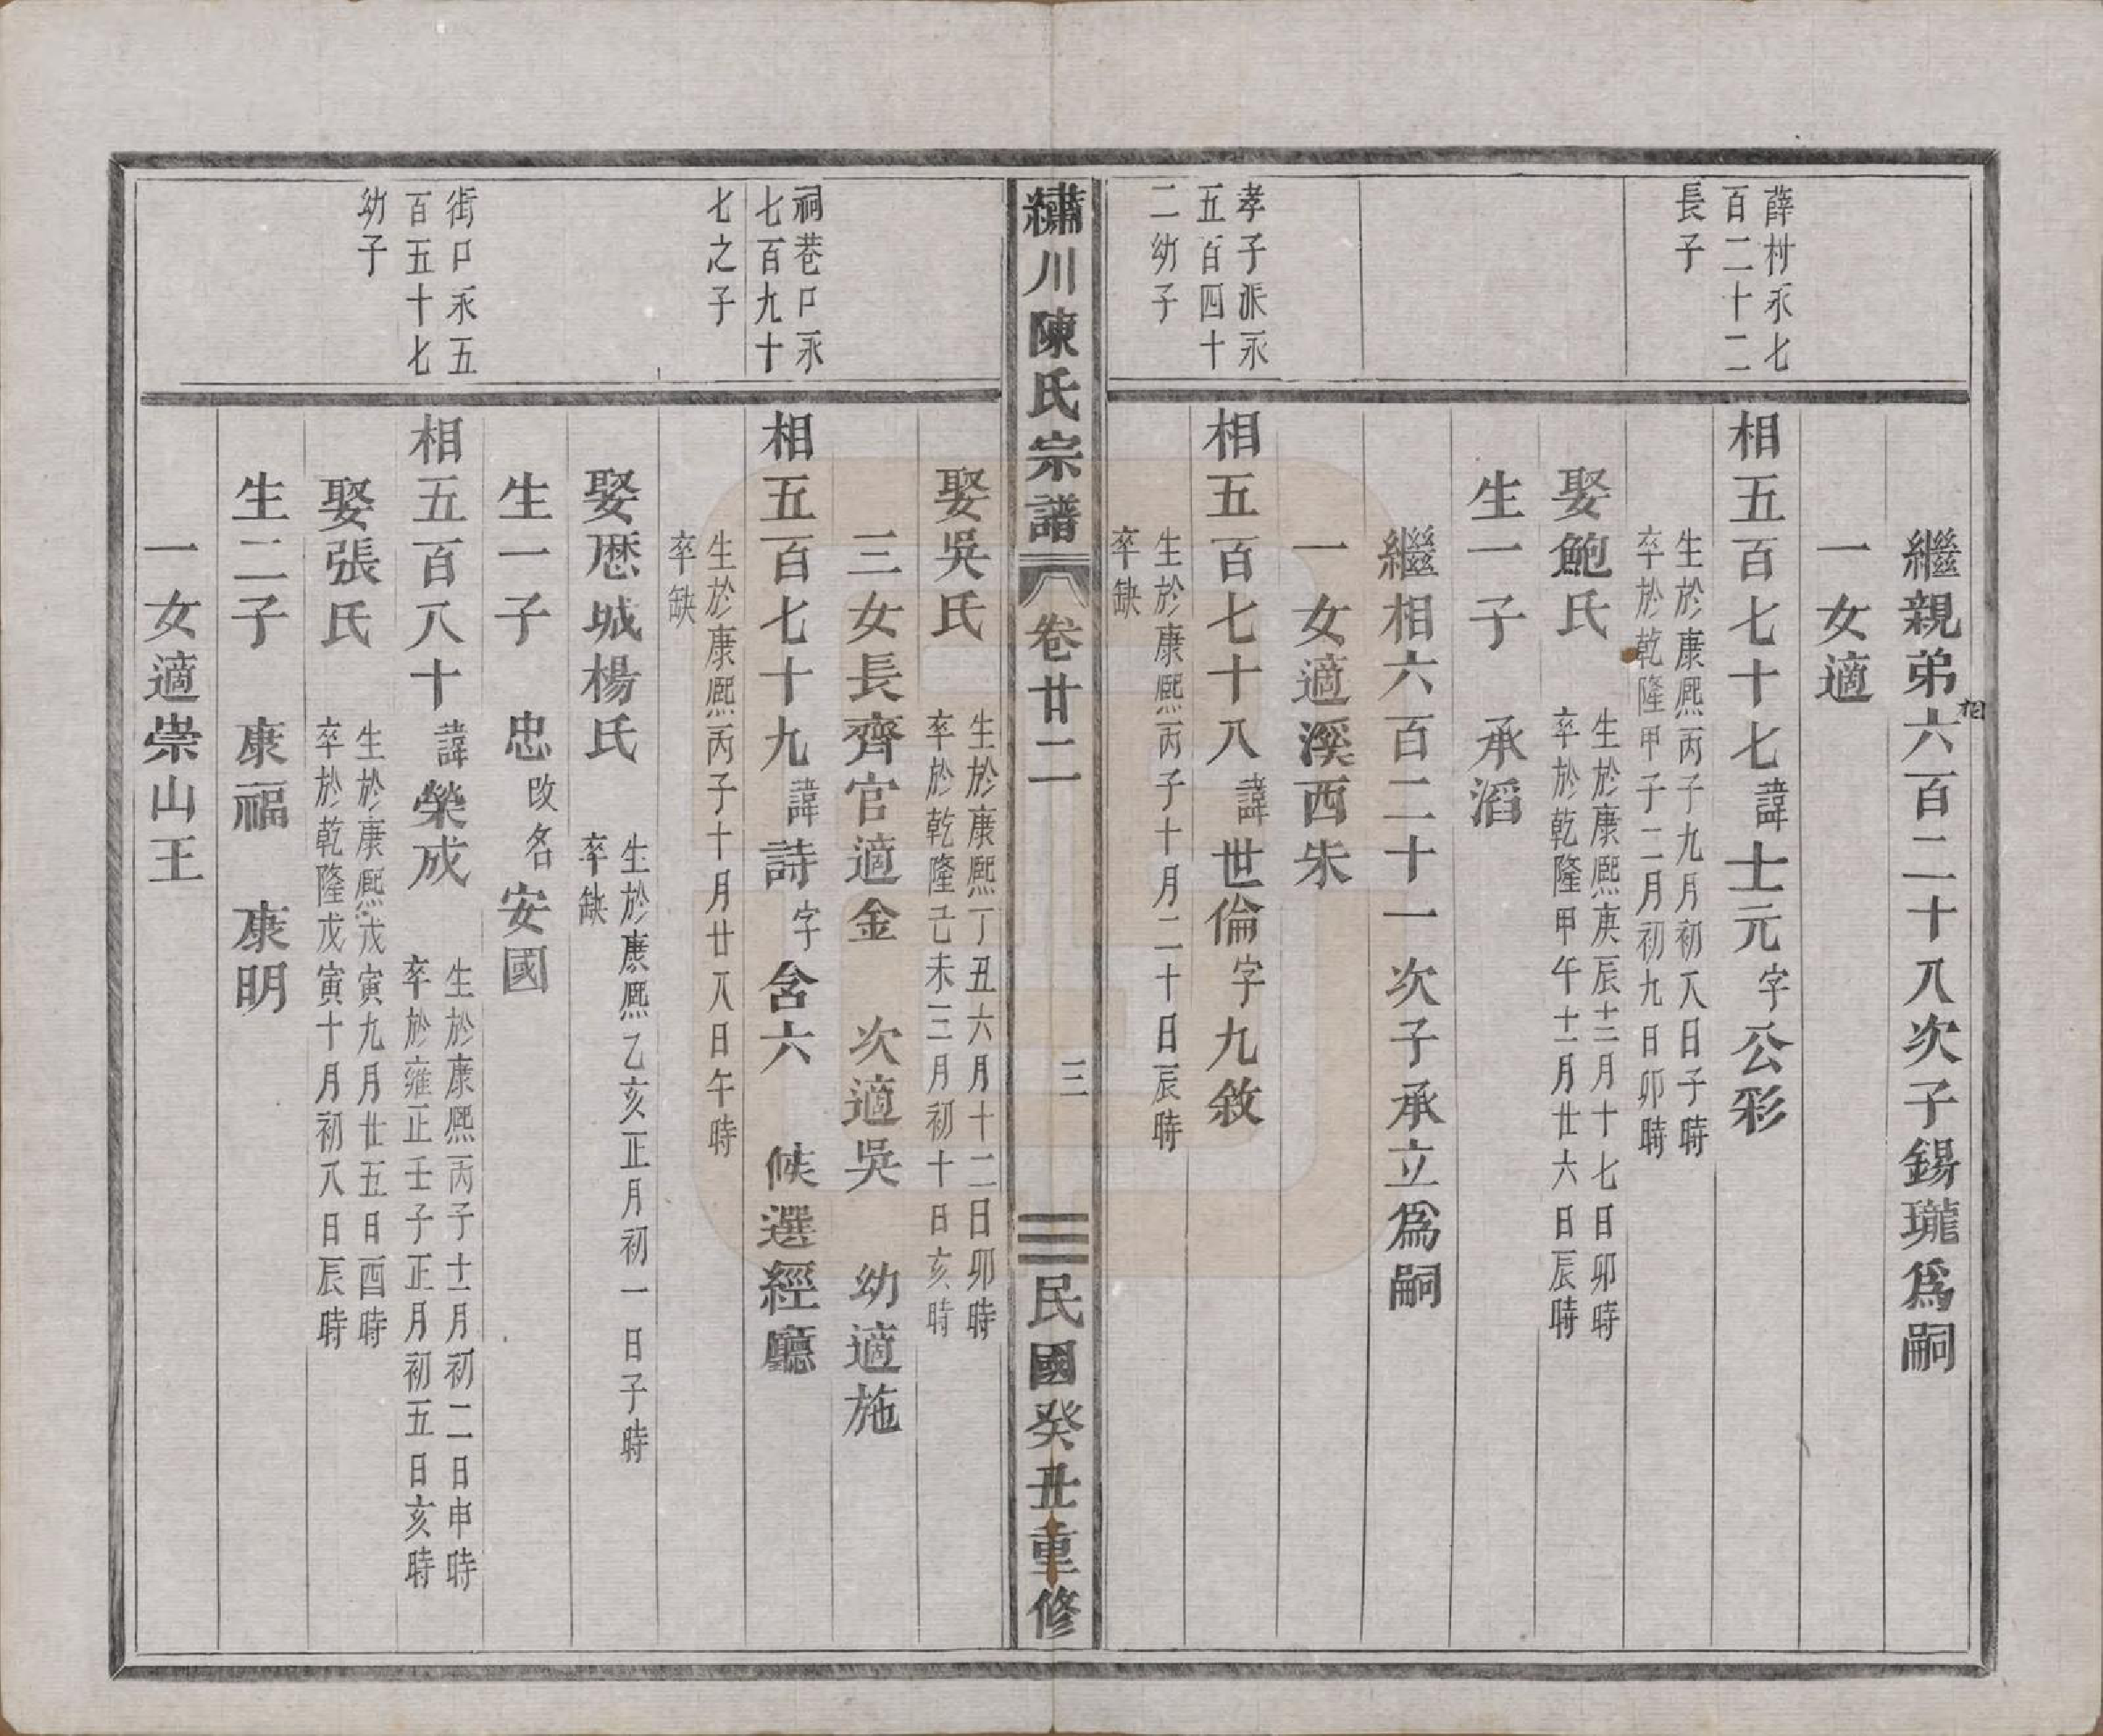 繼親弟相六百二十八次子錫瓏爲嗣
一女適
薛村永七
百二十二
長子
相五百七十七諱士元字公彩
生於康熙丙子九月初八日子時
卒於乾隆甲子二月初九日卯時
娶鮑氏
生於康熙庚辰十二月十七日卯時
卒於乾隆甲午十一月廿六日辰時
生一子 承滔
繼相六百二十一次子承立爲嗣
一女適溪西朱
孝子派永
五百四十
二幼子
相五百七十八諱世倫字九敘
生於康熙丙子十月二十日辰時
卒缺
繡川陳氏宗譜 卷廿二 三 民國癸丑重修
娶吳氏
生於康熙丁丑六月十二日卯時
卒於乾隆己未三月初十日亥時
三女長齊官適金 次適吳 幼適施
祠巷口永
七百九十
七之子
相五百七十九諱詩字含六 候選經廳
生於康熙丙子十月廿八日午時
卒缺
娶厯城楊氏
生於康熙乙亥正月初一日子時
卒缺
生一子 忠改名安國
街口永五
百五十七
幼子
相五百八十諱榮成
生於康熙丙子十一月初二日申時
卒於雍正壬子正月初五日亥時
娶張氏
生於康熙戊寅九月廿五日酉時
卒於乾隆戊寅十月初八日辰時
生二子 康福 康明
一女適崇山王